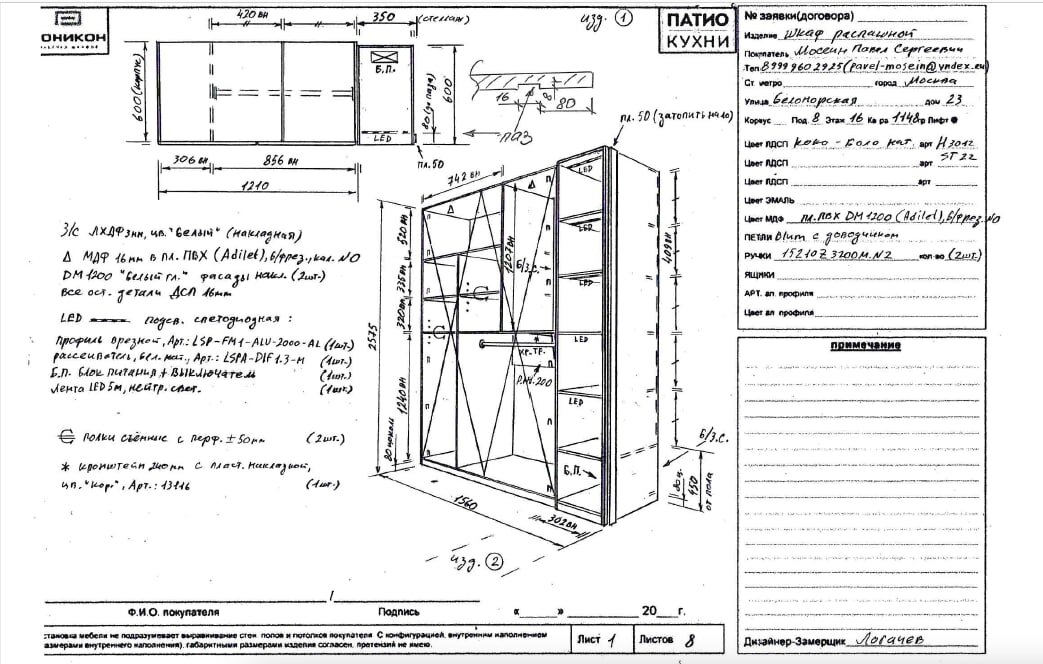 ОНИКОН
420 вн
350 (стеллаж)
изд. 1
ПАТИО
КУХНИ
600 (корпус)
Б.П.
LED
80 (до паза)
600
16
8
80
паз
пл. 50
пл. 50 (затопить на 10)
306 вн
856 вн
1210
З/с ЛХДФ 3мм, цв. "белый" (накладная)
Δ МДФ 16мм в пл. ПВХ (Adilet), б/фрез., кат. NO
DM 1200 "Белый гл." фасады накл. (2шт.)
все ост. детали ДСП 16мм
LED подсв. светодиодная :
Профиль врезной, Арт.: LSP-FM1-ALU-2000-AL (1шт.)
рассеиватель, бел. мат., Арт.: LSPA-DIF1.3-M (1шт.)
Б.П. блок питания + выключатель (1шт.)
Лента LED 5м, нейтр. свет. (1шт.)
полки съёмные с перф. ± 50мм (2шт.)
* кронштейн 240мм с пласт. накладкой,
цв. "кор.", Арт.: 13116 (1шт.)
742 вн
Δ
Δ
LED
520 вн
1207 вн
Б/З.С.
LED
409 вн
335 вн
LED
320 вн
2575
LED
кр. тр.
1240 вн
LED
80 цоколь
Б.П.
Б/З.С.
80 ц.
450
от пола
1560
302 вн
изд. 2
№ заявки(договора)
Изделие Шкаф распашной
Покупатель Мосеин Павел Сергеевич
Тел 8 999 960 29 25 (pavel-mosein@yndex.eu)
Ст метро город Москва
Улица Беломорская дом 23
Корпус Под 8 Этаж 16 Кв ра 114 Лифт
Цвет ЛДСП Коко - Боло нат. арт H3012
Цвет ЛДСП арт ST22
Цвет ЛДСП арт
Цвет ЭМАЛЬ
Цвет МДФ пл. ПВХ DM 1200 (Adilet), б/фрез. NO
ПЕТЛИ Blum с доводчиком
РУЧКИ 15210Z3200M.N2 кол-во (2шт.)
ЯЩИКИ
АРТ. ал. профиля
Цвет ал профиля
примечание
Дизайнер-Замерщик Логачев
Ф.И.О. покупателя / Подпись « » 20 г.
становка мебели не подразумевает выравнивание стен, полов и потолков покупателя С конфигурацией, внутренним наполнением
размерами внутреннего наполнения), габаритными размерами изделия согласен, претензий не имею.
Лист 1 Листов 8